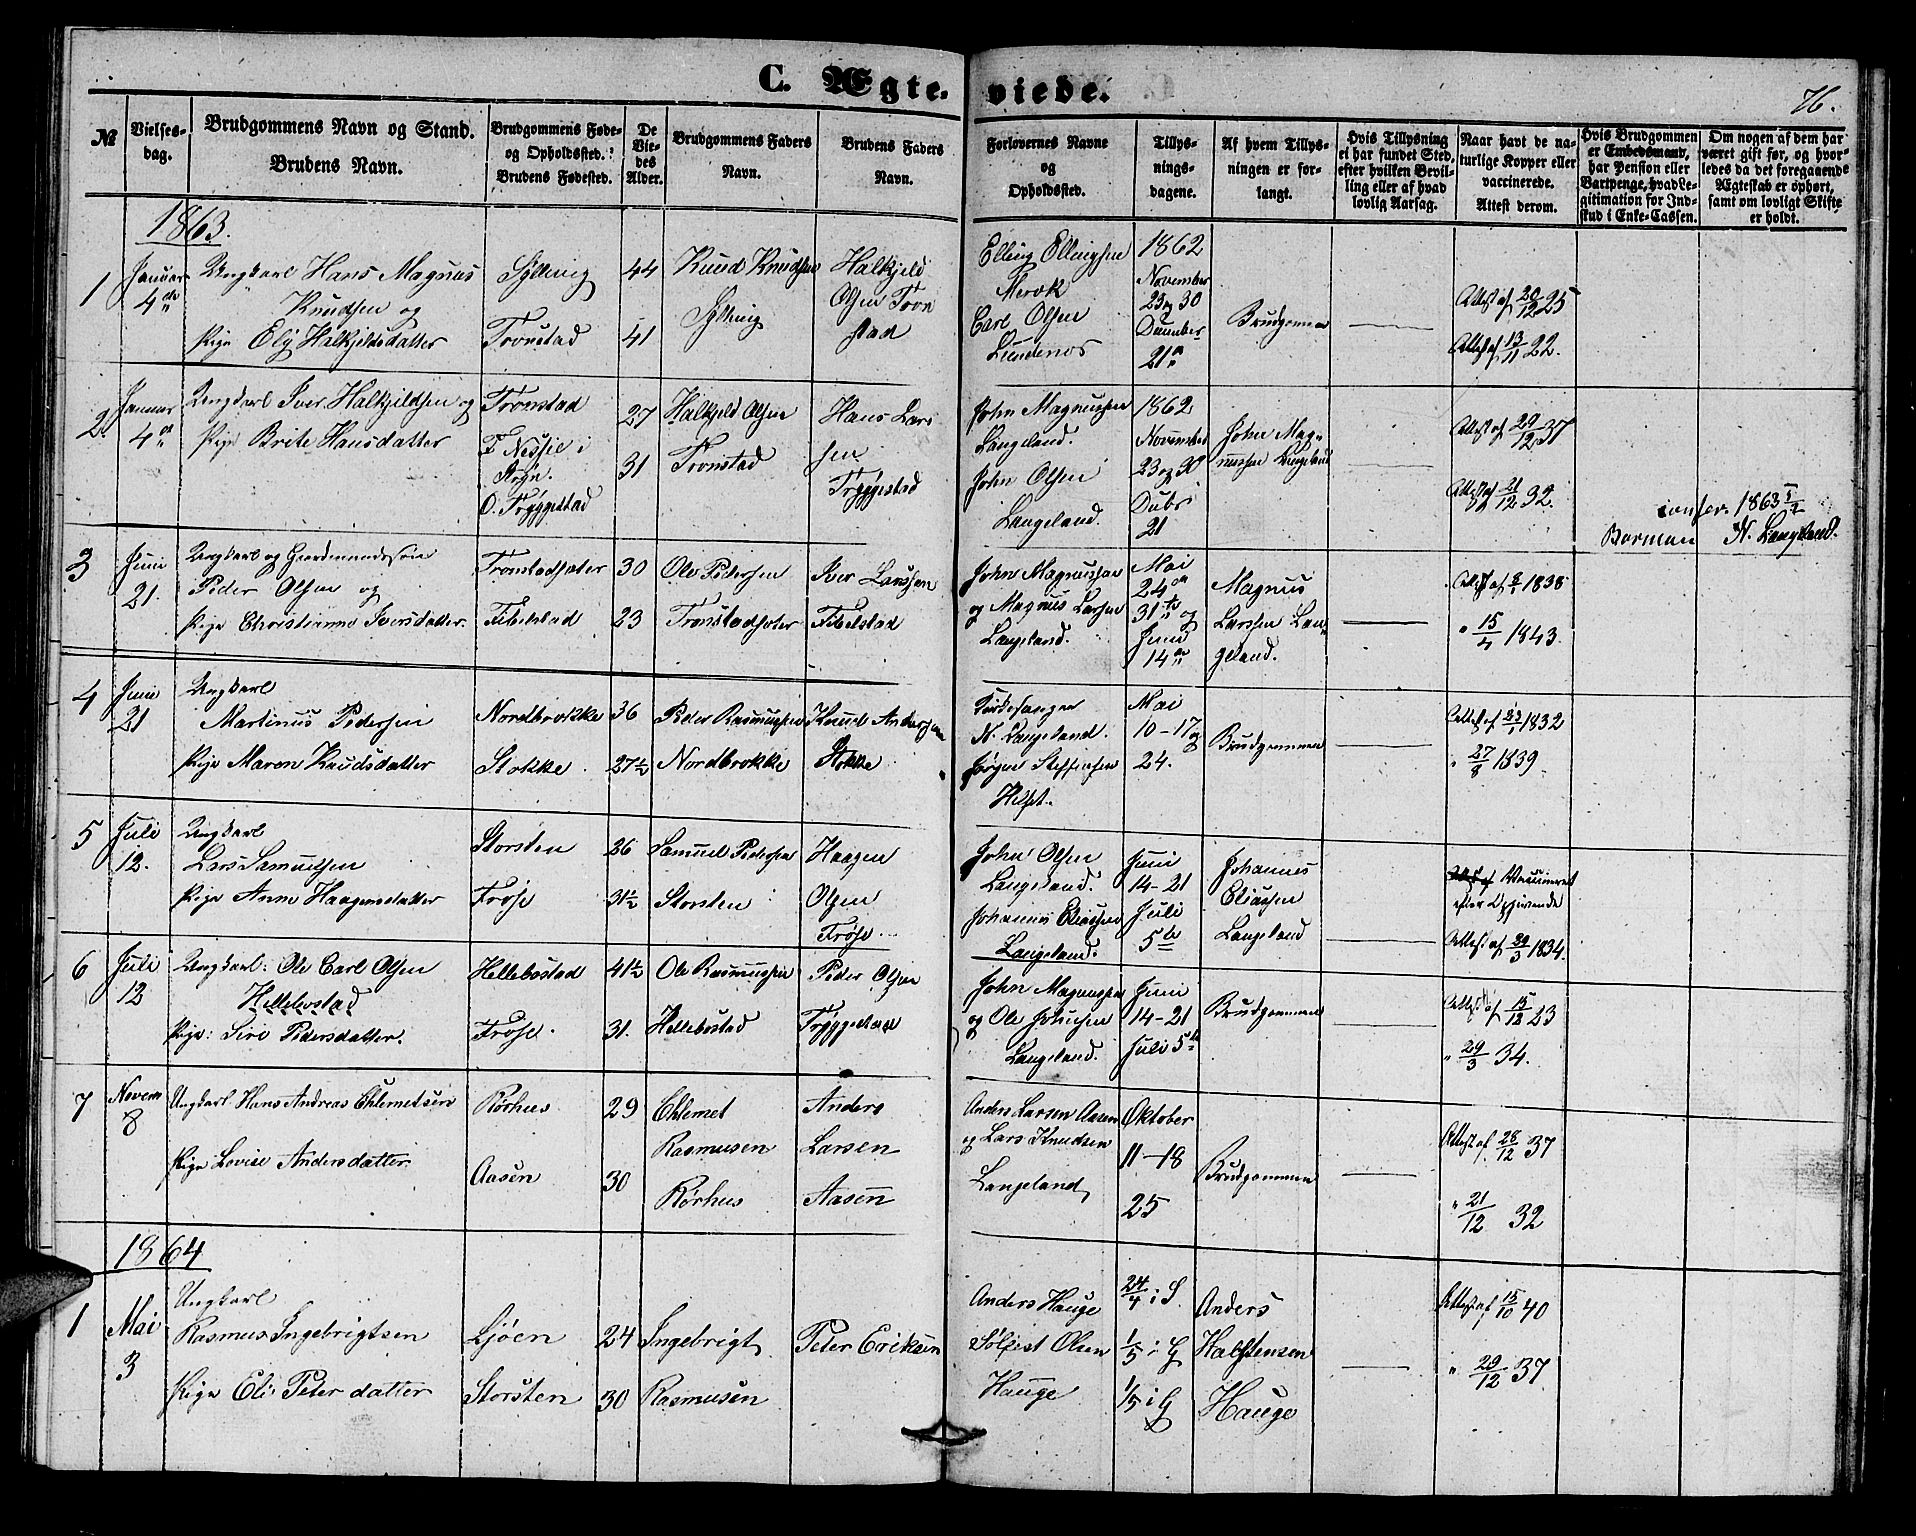 C. Ægte-viede.
76.
№
Vielses-dag.
Brudgommens Navn og Stand.
Brudens Navn.
Brudgommens Føde-
og Opholdssted.
Brudens Fødested.
De Vie-des Alder.
Brudgommens Faders
Navn.
Brudens Faders
Navn.
Forlovernes Navne
og
Opholdssted.
Tillys-
nings-
dagene.
Af hvem Tillys-
ningen er for-
langt.
Hvis Tillysning
ei har fundet Sted,
efter hvilken Bevil-
ling eller af hvad
lovlig Aarsag.
Naar havt de na-
turlige Kopper eller
vaccinerede.
Attest derom.
Hvis Brudgommen
er Embedsmand,
har Pension eller
Vartpenge, hvad Le-
gitimation for Ind-
skud i Enke-Cassen.
Om nogen af dem har
været gift før, og hvor-
ledes da det foregaaende
Ægteskab er ophørt,
samt om lovligt Skifte
er holdt.
1863.
1
Januar
4de
Ungkarl Hans Magnus
Knudsen og
Pige Elij Halkjeldsdatter
Sylling
Tronstad
44
41
Knud Knudsen
Sylling
Halkjeld
Olsen Tron
stad
Elling Ellingsen
Merok
Carl Olsen
Lundenes
1862
November
23 og 30
December
21
Brudgommen
Attest af 20/12 25
Attest af 13/11 22.
2.
Januar
4de
Ungkarl Iver Halkjeldsen og
Pige Brite Hansdatter
Tronstad
F. Nessje i
Stryn.
O. Tryggestad
27
31
Halkjeld Olsen
Tronstad
Hans Lars
sen
Tryggestad
John Magnussen
Langeland.
John Olsen
Langeland.
1862
November
23 og 30
Decbr
21
John Mag-
nussen Langeland
Attest af 29/12 37
Attest af 21/12 32.
confer. 1863
N. Langeland.
3
Juni
21.
Ungkarl og Gaardmandssøn
Peder Olsen og
Pige Christianne Iversdatter.
Tronstadsæter
Fibelstad
30
23
Ole Pedersen
Tronstadsæter
Iver Larssen
Fibelstad
John Magnussen
og Magnus Larsen
Langeland.
Mai
24de
31te og
Juni
14de
Magnus
Larssen Lan-
geland.
" 15/4 1843.
4
Juni
21
Ungkarl
Martinus Pedersen
Pige Maren Knudsdatter
Nordbrokke
Stokke.
36
27½
Peder Rasmussen
Nordbrokke
Knud Andersen
Stokke
Kirkesanger
N. Langeland.
Jørgen Steffensen
Helset.
Mai
10-17 og
24.
Brudgommen
" 27/8 1839.
5
Juli
12.
Ungkarl
Lars Samuelsen
Pige Anne Haagensdatter
Storsten
Frøse
26
31½
Samuel Pedersen
Storsten
Haagen
Olsen
Frøse.
John Olsen
Langeland.
Johannes Eliassen
Langeland.
Juni
14-21
Juli
5te
Johannes
Eliassen
Langeland
Vaccineret
efter Opgivende
Attest af 29/3 1834.
6
Juli
12
Ungkarl: Ole Carl Olsen
Hellebostad
Pige: Siri Pedersdatter.
Hellebostad
Frøse.
41½
31.
Ole Rasmussen
Hellebostad
Peder Olsen
Tryggestad
John Magnussen
og Ole Johnsen
Langeland.
Juni
14-21
Juli 5te
Brudgommen
Attest af 15/12 23
" 29/3 34.
7
Novem
8
Ungkarl Hans Andreas Chlemetsen
Pige Lovise Andersdatter
Rørhus
Aasen
29
30
Chlemet
Rasmusen
Rørhus
Anders
Larsen
Aasen
Anders Larsen Aasen
og Lars Knudsen
Langeland
Oktober
11-18
25
Brudgommen
Attest af 28/12 37
" 21/12 32
1864
1
Mai
3
Ungkarl
Rasmus Ingebrigtsen
Pige Eli Peterdatter
Ljøen
Storsten
24
30
Ingebrigt
Rasmusen
Peter Eriksen
Anders Hauge
Sølfest Olsen
Hauge
24/4 i S.
1/5 i G
1/5 i G
Anders
Halstensen
Hauge
Attest af 15/10 40
" 29/12 37